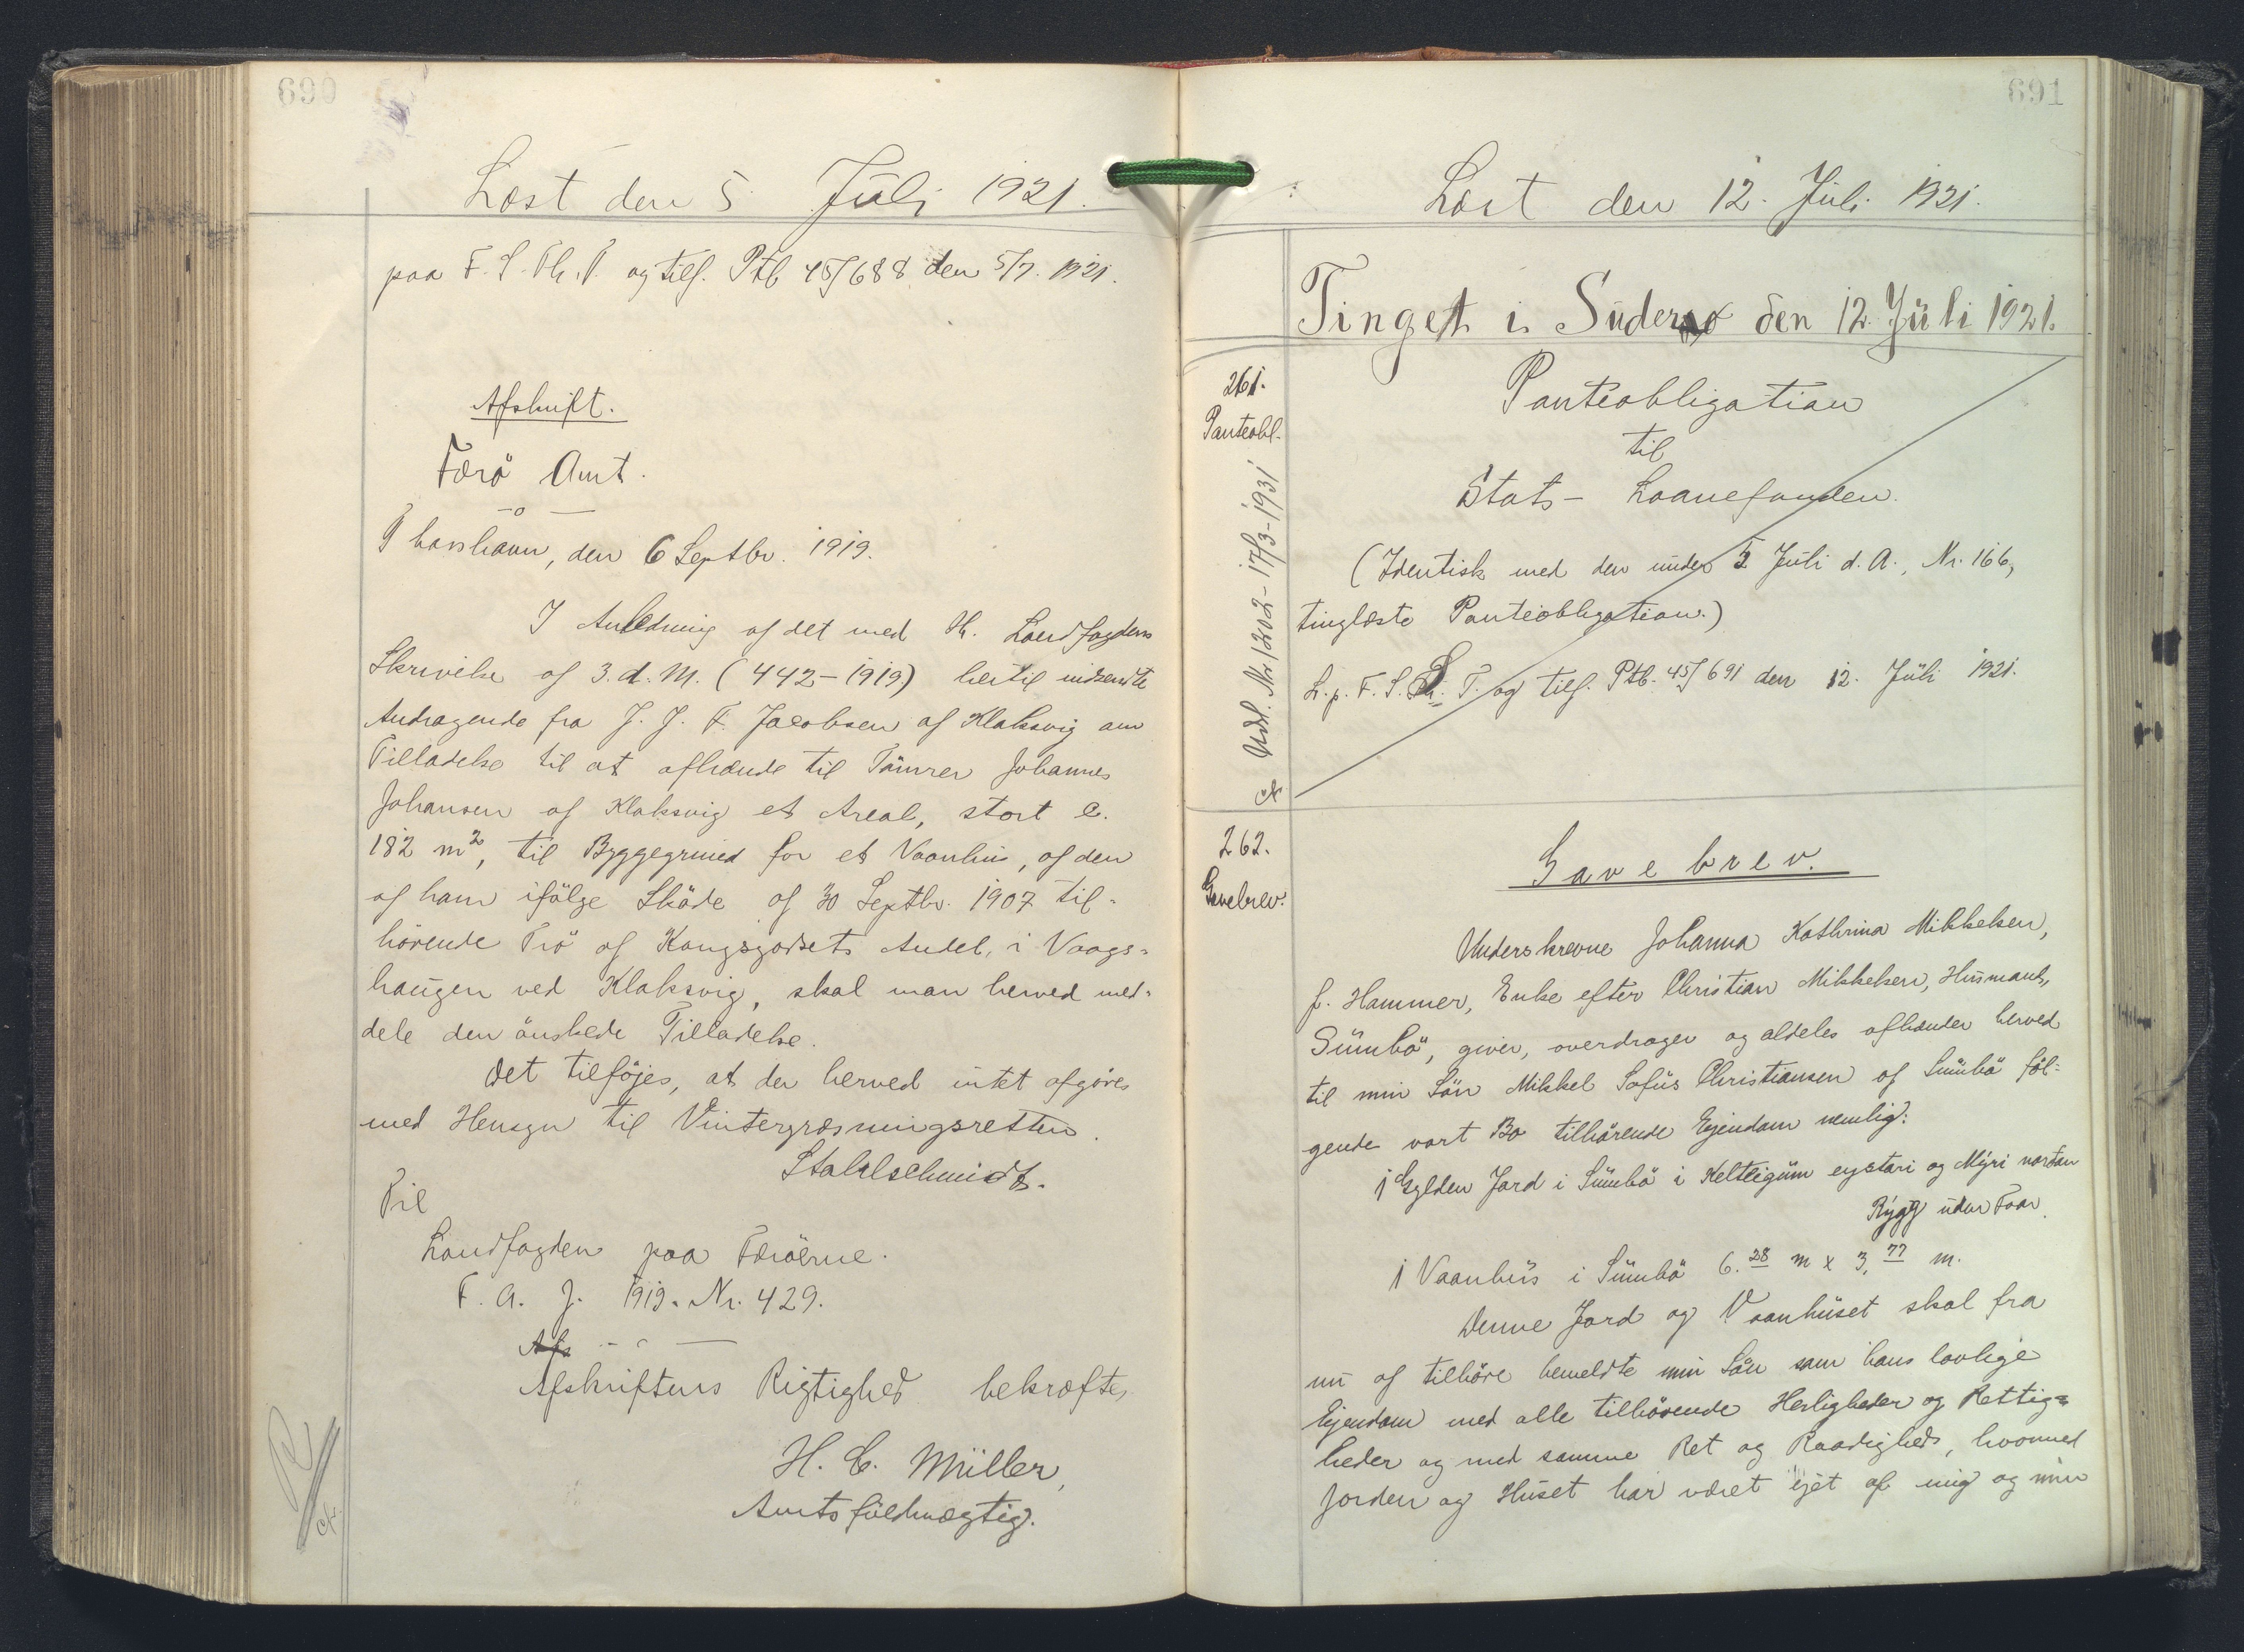 690
Læst den 5. Juli 1921.
paa F. S. Th. T. og tilf. Ptb 45/688 den 5/7. 1921.
Afskrift.
Færö Amt.
Thorshavn, den 6 Septbr. 1919.
I Anledning af det med Hr. Landfogdens
Skrivelse af 3. d. M. (442-1919) hertil indsendte
Andragende fra J. J. F. Jacobsen af Klaksvig om
Tilladelse til at afhænde til Tömrer Johannes
Johansen af Klaksvig et Areal, stort c.
182 m², til Byggegrund for et Vaanhus, af den
af ham ifölge Sköde af 30 Septbr. 1907 til=
hörende Trö af Kongsgodsets Andel i Vaags=
haugen ved Klaksvig, skal man herved med=
dele den önskede Tilladelse.
Det tilföjes, at der herved intet afgöres
med Hensyn til Vintergræsningsretten.
Stahlschmidt.
Til
Landfogden paa Færöerne.
F. A. J. 1919. Nr. 429.
Afs
Afskriftens Rigtighed bekræftes
H. C. Müller,
Amtsfuldmægtig.
691
Læst den 12. Juli 1921.
Tinget i Suderø den 12. Juli 1921.
261.
Panteobl.
Udsl. Nr. 1202-17/3-1931
Panteobligation
til
Stats-Laanefonden.
(Identisk med den under 5 Juli d. A., Nr. 166,
tinglæste Panteobligation.)
L. p. F. S. Th. T. og tilf. Ptb. 45/691 den 12. Juli 1921.
262.
Gavebrev.
Gavebrev.
Underskrevne Johanna Kathrina Mikkelsen,
f. Hammer, Enke efter Christian Mikkelsen, Husmand,
Sumbö, giver, overdrager og aldeles afhænder herved
til min Sön Mikkel Sofus Christiansen af Sumbö föl=
gende vort Bo tilhörende Ejendom nemlig:
1 Gylden Jord i Sumbö i Kelteigum eystari og Mýri nordan
Rygg uden Faar.
1 Vaanhus i Sumbö 6.28 m x 3,77 m.
Denne Jord og Vaanhuset skal fra
nu af tilhöre bemeldte min Sön som hans lovlige
Ejendom med alle tilhörende Herligheder og Rettig=
heder og med samme Ret og Raadighed, hvormed
Jorden og Huset har været ejet af mig og min